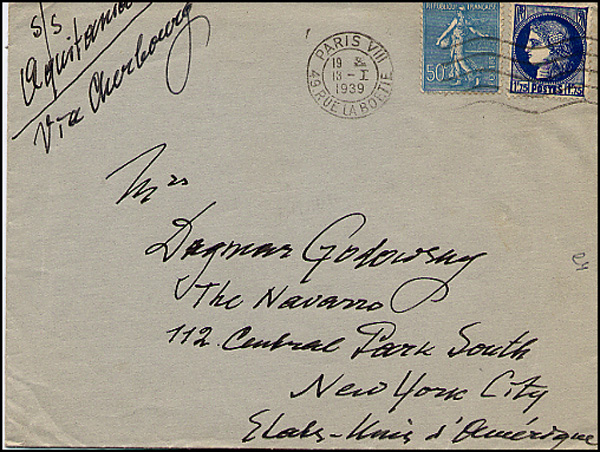 S/S
Aquitania
Via Cherbourg
PARIS VIII
19
13 - I
1939
49 RUE LA BOETIE
REPUBLIQUE FRANÇAISE
50c
1,75 POSTES 1,75
Mrs
Dagmar Godowsky
The Navarro
112 Central Park South
New York City
Etats-Unis d'Amérique